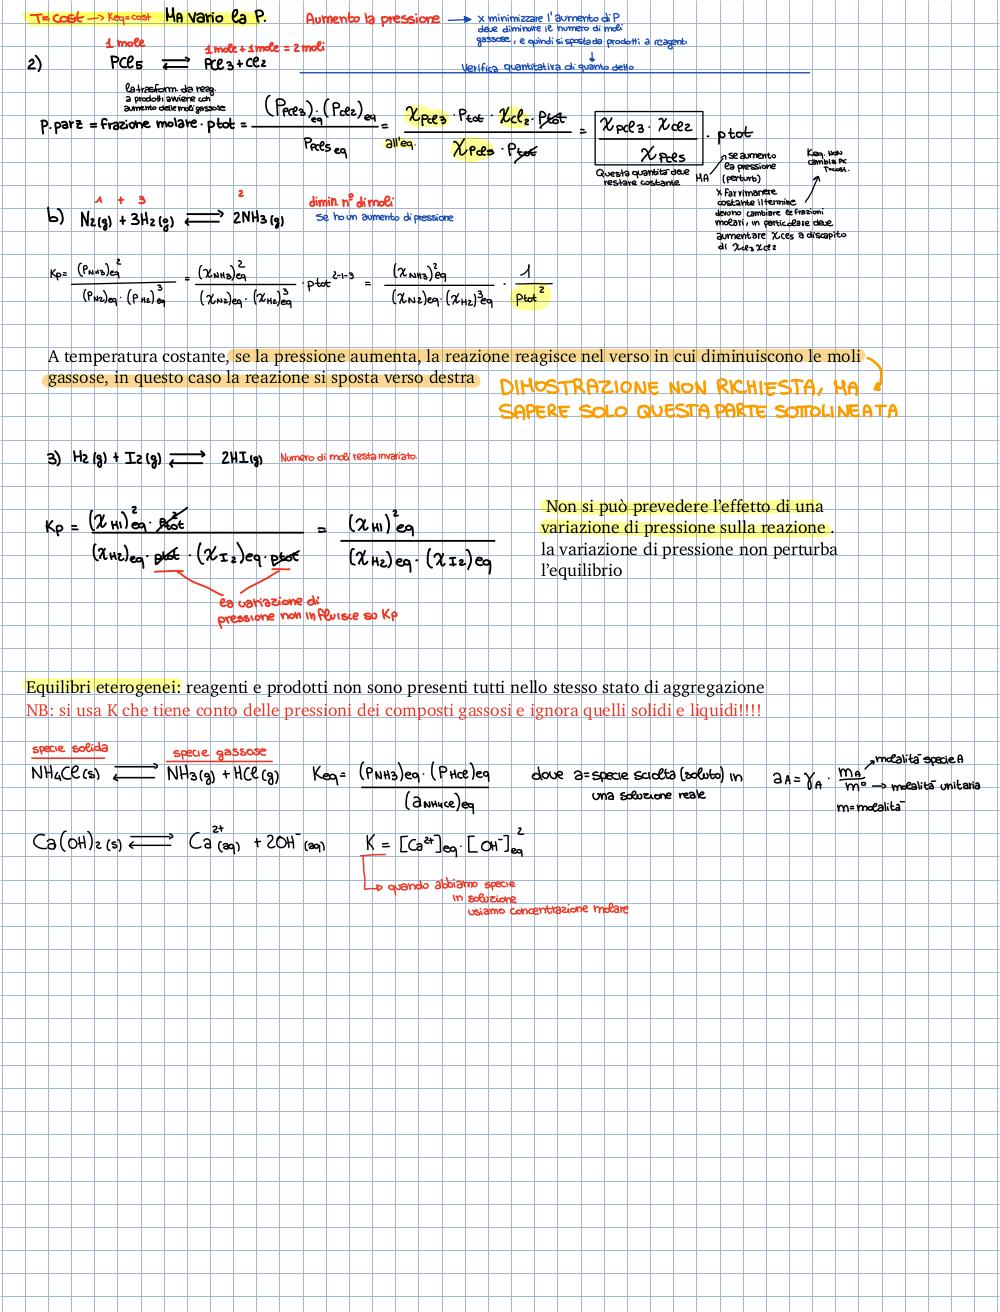 T=cost → Keq=cost MA vario la P.
Aumento la pressione → x minimizzare l'aumento di P
deve diminuire il numero di moli
gassose, e quindi si sposta da prodotti a reagenti
↓
Verifica quantitativa di quanto detto
1 mole
1 mole + 1 mole = 2 moli
2) PCl5 ⇄ PCl3 + Cl2
la trasform. da reag.
a prodotti avviene con
aumento delle moli gassose
P.parz = frazione molare · ptot = (PPCl3)eq · (PCl2)eq / PPCl5 eq = all'eq. χPCl3 · Ptot · χCl2 · Ptot / χPCl5 · Ptot = χPCl3 · χCl2 / χPCl5 · ptot
Questa quantità deve
restare costante MA
se aumento
la pressione
(perturb)
Keq. NON
cambia Pk
T=cost.
x far rimanere
costante il termine
devono cambiare le frazioni
molari, in particolare deve
aumentare χCl5 a discapito
di χCl3 χCl2
1 + 3 2
b) N2(g) + 3H2(g) ⇄ 2NH3(g)
dimin n° di moli
se ho un aumento di pressione
Kp = (PNH3)²eq / (PN2)eq · (PH2)³eq = (χNH3)²eq / (χN2)eq · (χH2)³eq · ptot^2-1-3 = (χNH3)²eq / (χN2)eq · (χH2)³eq · 1 / ptot²
A temperatura costante, se la pressione aumenta, la reazione reagisce nel verso in cui diminuiscono le moli
gassose, in questo caso la reazione si sposta verso destra
DIMOSTRAZIONE NON RICHIESTA, MA
SAPERE SOLO QUESTA PARTE SOTTOLINEATA
3) H2(g) + I2(g) ⇄ 2HI(g) Numero di moli resta invariato.
Kp = (χHI)²eq · ptot² / (χH2)eq · ptot · (χI2)eq · ptot = (χHI)²eq / (χH2)eq · (χI2)eq
la variazione di
pressione non influisce su Kp
Non si può prevedere l'effetto di una
variazione di pressione sulla reazione .
la variazione di pressione non perturba
l'equilibrio
Equilibri eterogenei: reagenti e prodotti non sono presenti tutti nello stesso stato di aggregazione
NB: si usa K che tiene conto delle pressioni dei composti gassosi e ignora quelli solidi e liquidi!!!!
specie solida specie gassose
NH4Cl(s) ⇄ NH3(g) + HCl(g) Keq = (PNH3)eq · (PHCl)eq / (aNH4Cl)eq
dove a=specie sciolta (soluto) in
una soluzione reale
aA = γA · mA / m°
→ molalità specie A
→ molalità unitaria
m=molalità
Ca(OH)2(s) ⇄ Ca2+(aq) + 2OH-(aq) K = [Ca2+]eq · [OH-]²eq
quando abbiamo specie
in soluzione
usiamo concentrazione molare